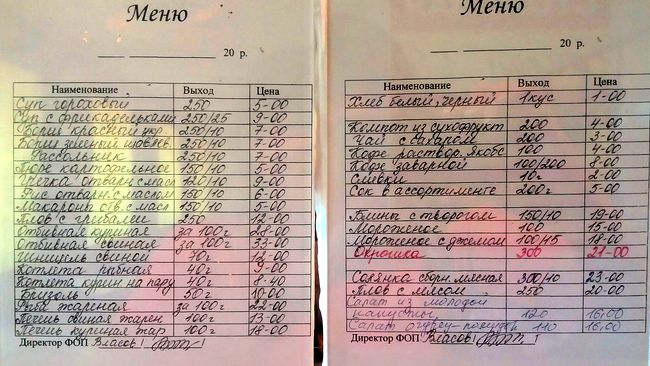 Меню
20 р.
Наименование Выход Цена
Суп гороховый 250 5-00
Суп с фрикадельками 250/25 9-00
Борщ красный укр. 250/10 7-00
Борщ зеленый щавлев. 250/40 7-00
Рассольник 250 7-00
Пюре картофельное 150/10 5-00
Гречка отварн. с масл 120/10 9-00
Рис отварн. с маслом 150/10 6-00
Макароны отв. с масл 150/10 5-00
Плов с грибами 250 12-00
Отбивная куриная за 100г 28-00
Отбивная свиная за 100г 33-00
Шницель свиной 70г 12-00
Котлета рыбная 40г 9-00
Котлета курин на пару 40г 8-40
Бризоль 50г 10-00
Рыба жареная за 100г 22-00
Печень свиная жарен 100г 13-00
Печень куриная жар 100г 18-00
Директор ФОП Власов
Меню
20 р.
Наименование Выход Цена
Хлеб белый, черный 1кус 1-00
Компот из сухофрукт 200 4-00
Чай с сахаром 200 3-00
Кофе раствор. Якобс 100 4-00
Кофе заварной 100/200 8-00
Сливки 10г 2-00
Сок в ассортименте 200г 5-00
Блины с творогом 150/40 19-00
Мороженое 100 15-00
Мороженое с джемом 100/45 18-00
Окрошка 300 21-00
Солянка сборн. мясная 300/40 23-00
Плов с мясом 250 20-00
Салат из молодой
капусты 120 16,00
Салат огурец-помидор 110 16,00
Директор ФОП Власов